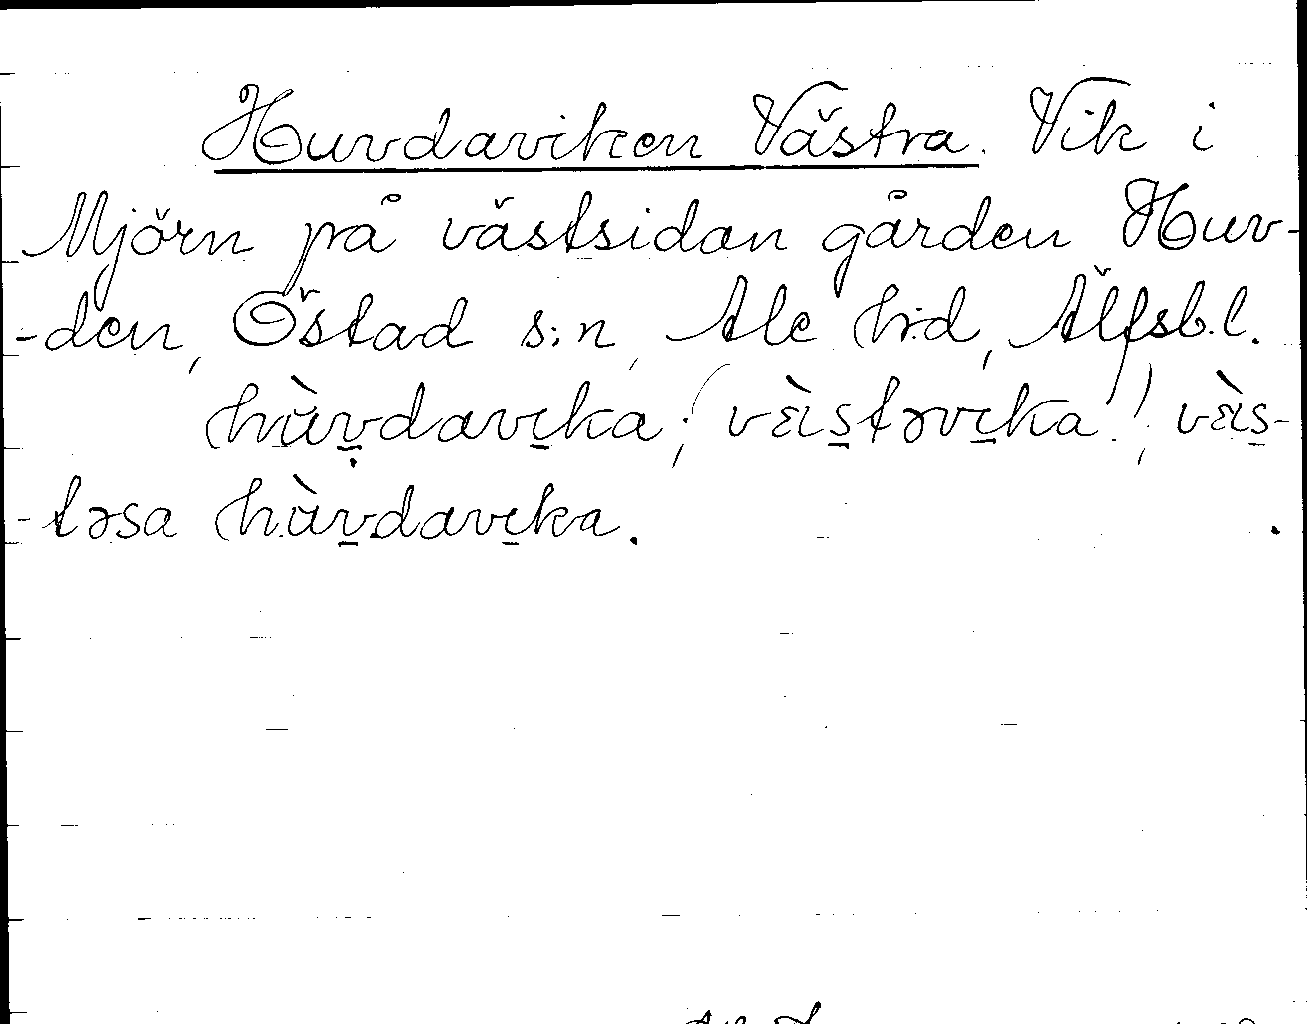 Huvdaviken Västra. Vik i
Mjörn på västsidan gården Huv-
-den, Östad s:n, Ale h:d, Älfsb.l.
hùv̲davɩ̲ka; (vὲis̲tərvɩ̲ka!), vὲis̲-
-təsa hùv̲davɩ̲ka.